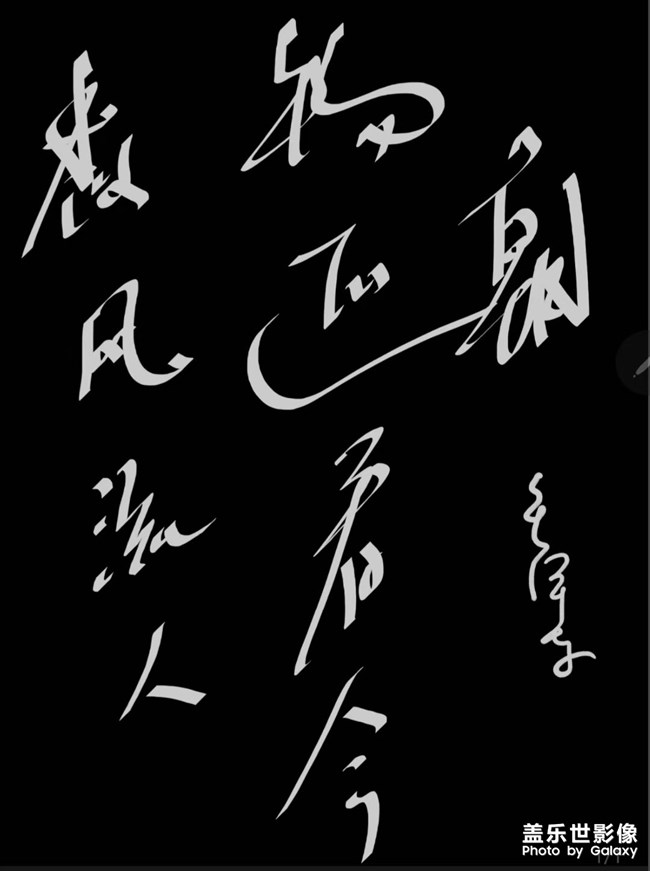 数风流人
物还看今
朝
毛泽东
盖乐世影像
Photo by Galaxy
1/1